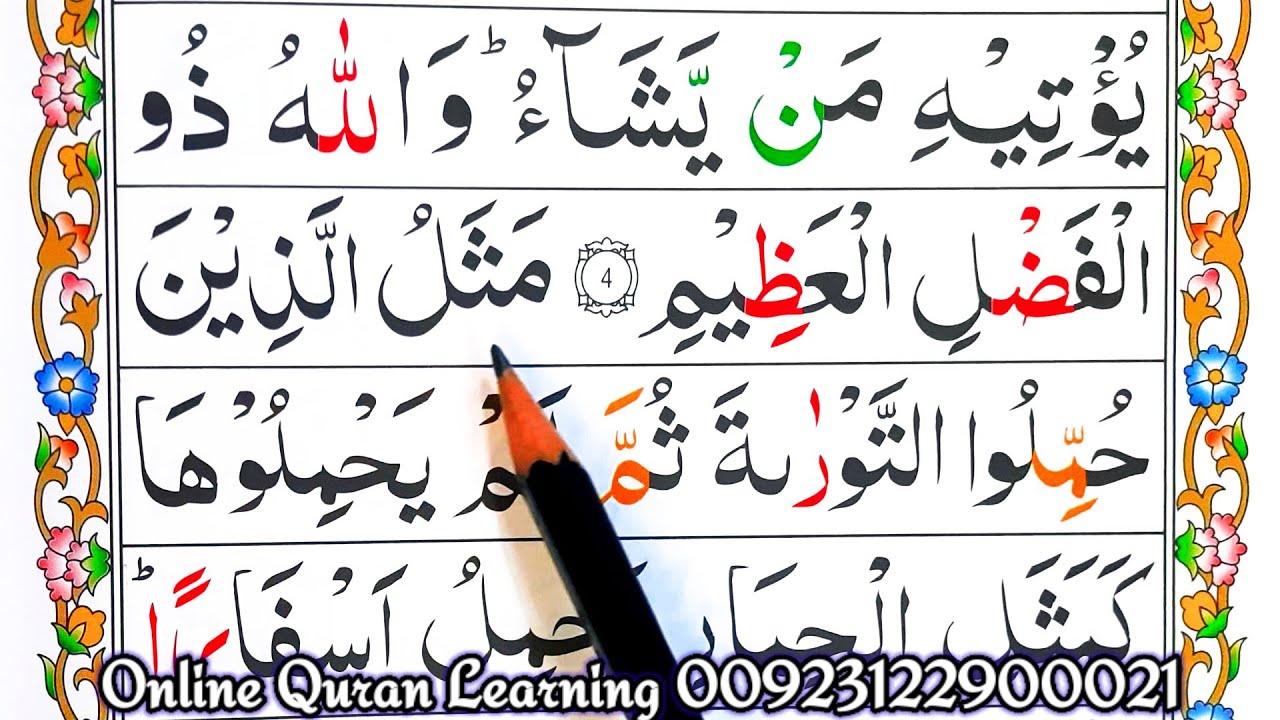 يُؤْتِيْهِ مَنْ يَّشَآءُ ؕ وَاللّٰهُ ذُو
الْفَضْلِ الْعَظِيْمِ ۝4 مَثَلُ الَّذِيْنَ
حُمِّلُوا التَّوْرٰىةَ ثُمَّ لَمْ يَحْمِلُوْهَا
كَمَثَلِ الْحِمَارِ يَحْمِلُ اَسْفَارًا ؕ
Online Quran Learning 00923122900021